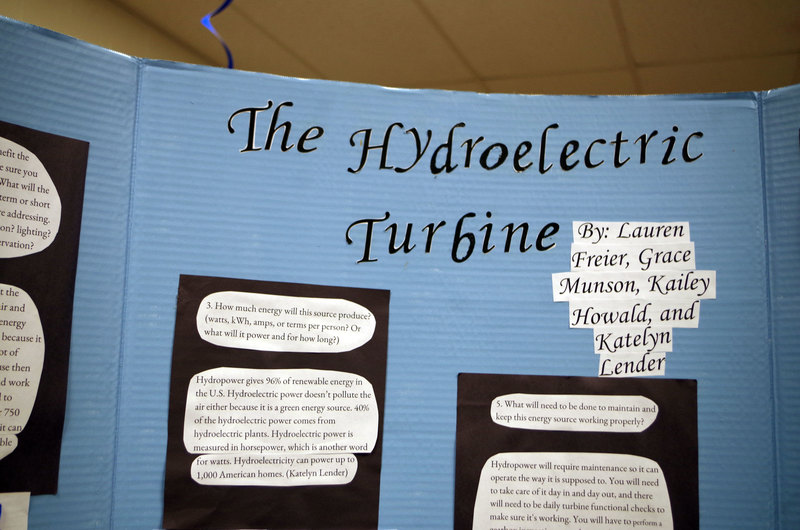 The Hydroelectric
Turbine
By: Lauren
Freier, Grace
Munson, Kailey
Howald, and
Katelyn
Lender
efit the
e sure you
What will the
term or short
e addressing.
on? lighting?
ervation?
t the
ir and
energy
because it
ot of
se then
d work
to
750
it can
ble
3. How much energy will this source produce?
(watts, kWh, amps, or terms per person? Or
what will it power and for how long?)
Hydropower gives 96% of renewable energy in
the U.S. Hydroelectric power doesn't pollute the
air either because it is a green energy source. 40%
of the hydroelectric power comes from
hydroelectric plants. Hydroelectric power is
measured in horsepower, which is another word
for watts. Hydroelectricity can power up to
1,000 American homes. (Katelyn Lender)
5. What will need to be done to maintain and
keep this energy source working properly?
Hydropower will require maintenance so it can
operate the way it is supposed to. You will need
to take care of it day in and day out, and there
will need to be daily turbine functional checks to
make sure it's working. You will have to perform a